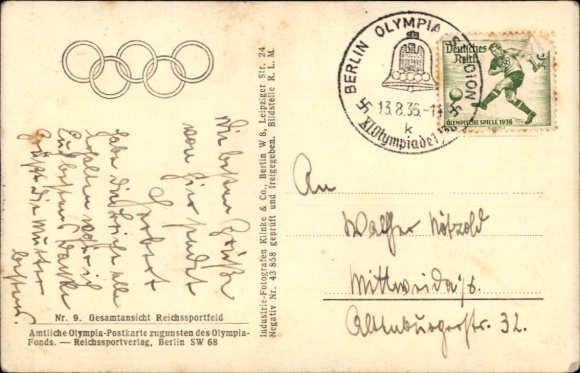 BERLIN OLYMPIA-STADION
13.8.36.-1
k
XI. Olympiade 1936
Deutsches
Reich
OLYMPISCHE SPIELE 1936
Die besten Grüße
von hier sendet
Herbert
Habe die
erhalten
Euch besten Danke
Grüße die Mutter
bestens.
Nr. 9. Gesamtansicht Reichssportfeld
Amtliche Olympia-Postkarte zugunsten des Olympia-
Fonds. — Reichssportverlag, Berlin SW 68
Industrie-Fotografen Klinke & Co., Berlin W 8, Leipziger Str. 24
Negativ Nr. 43 858 geprüft und freigegeben. Bildstelle R. L. M.
An
Walther
Mittweida /S.
Altenburgerstr. 32.